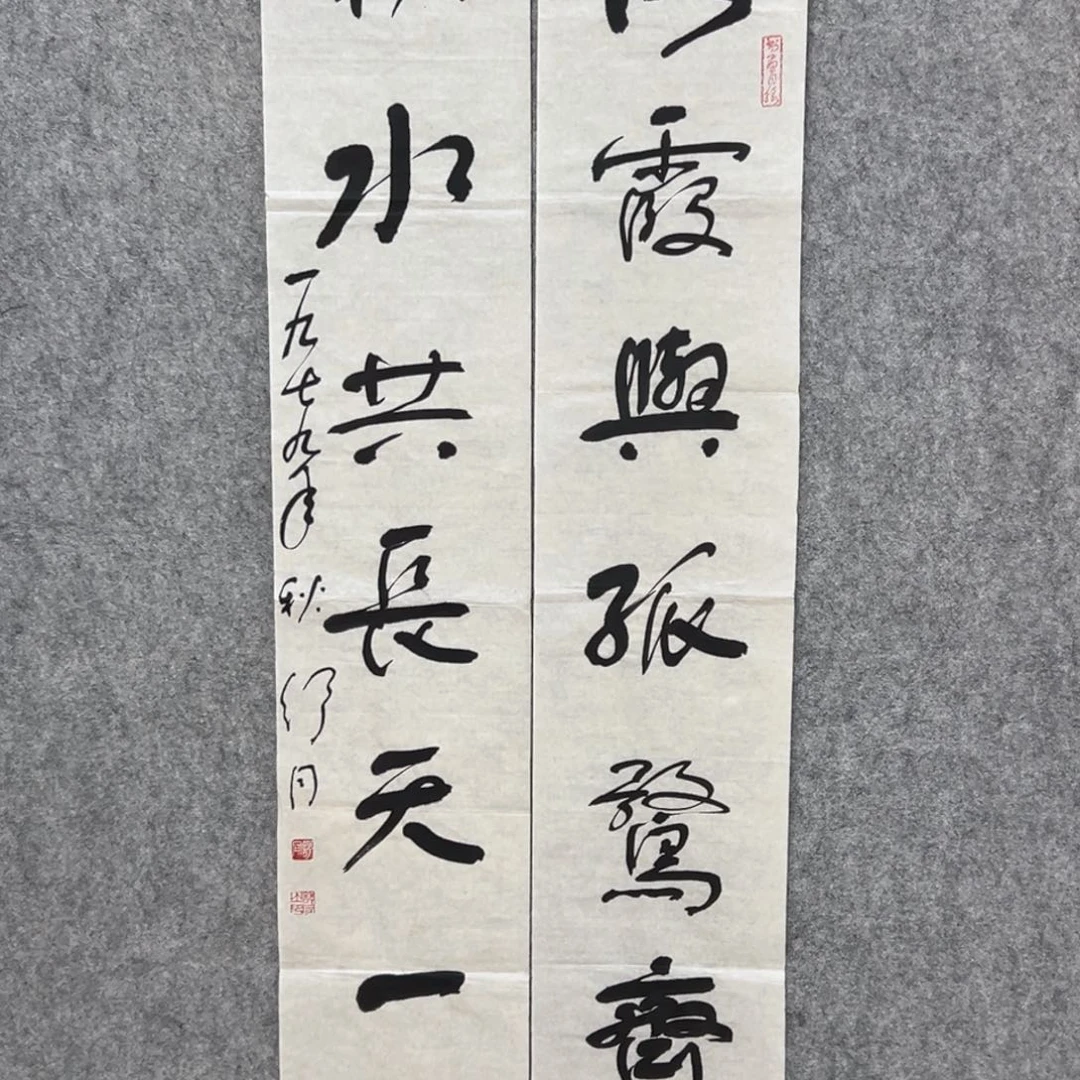 霞與孤鶩齊
水共長天一
一九七九年秋 舒同